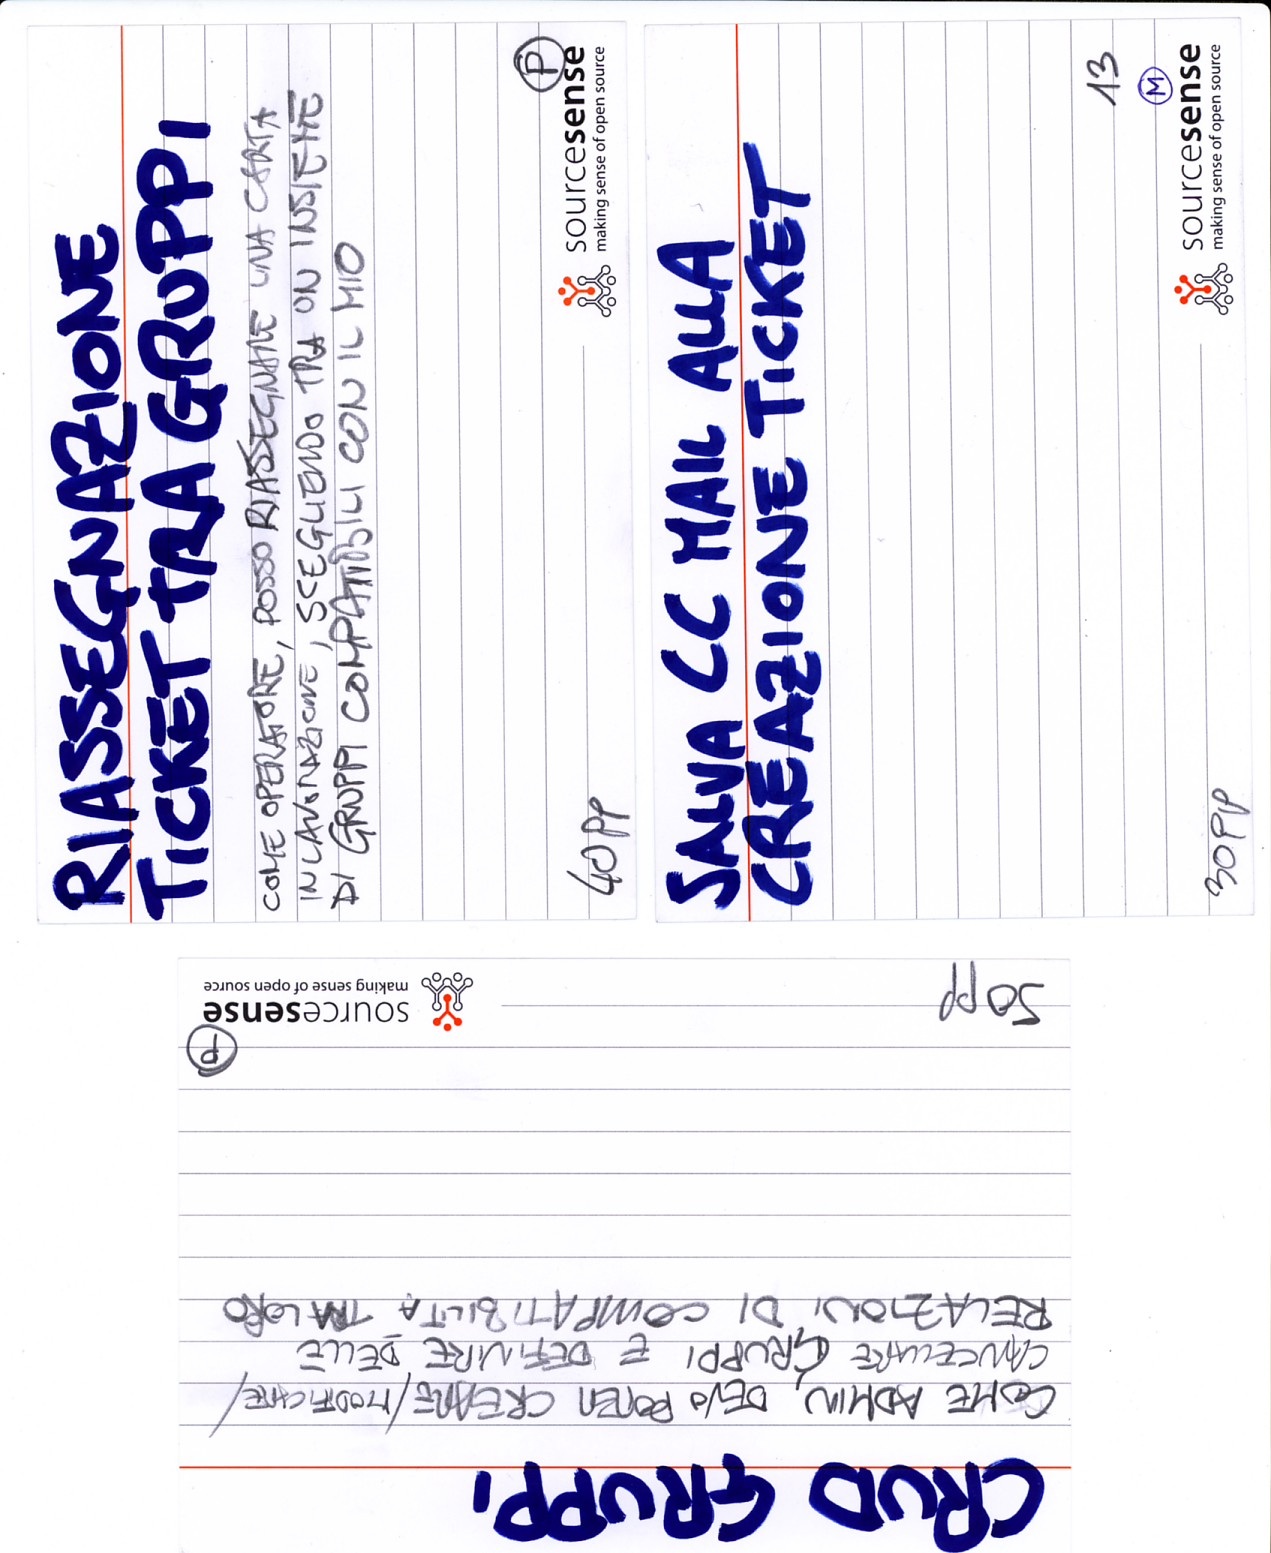 RIASSEGNAZIONE
TICKET TRA GRUPPI
COME OPERATORE, POSSO RIASSEGNARE UNA CARTA
IN LAVORAZIONE, SCEGLIENDO TRA UN INSIEME
DI GRUPPI COMPATIBILI CON IL MIO
40 PP
P
sourcesense
making sense of open source
SALVA CC MAIL ALLA
CREAZIONE TICKET
13
M
30 PP
sourcesense
making sense of open source
CRUD GRUPPI
COME ADMIN, DEVO POTER CREARE/MODIFICARE/
CANCELLARE GRUPPI E DEFINIRE DELLE
RELAZIONI DI COMPATIBILITÀ TRA LORO
P
50 PP
sourcesense
making sense of open source